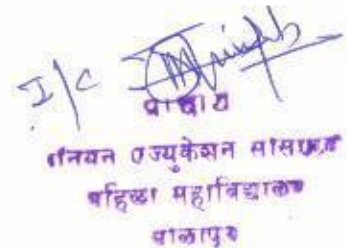 I/C
प्राचार्य
युनियन एज्युकेशन सोसायटी
महिला महाविद्यालय
सोलापूर